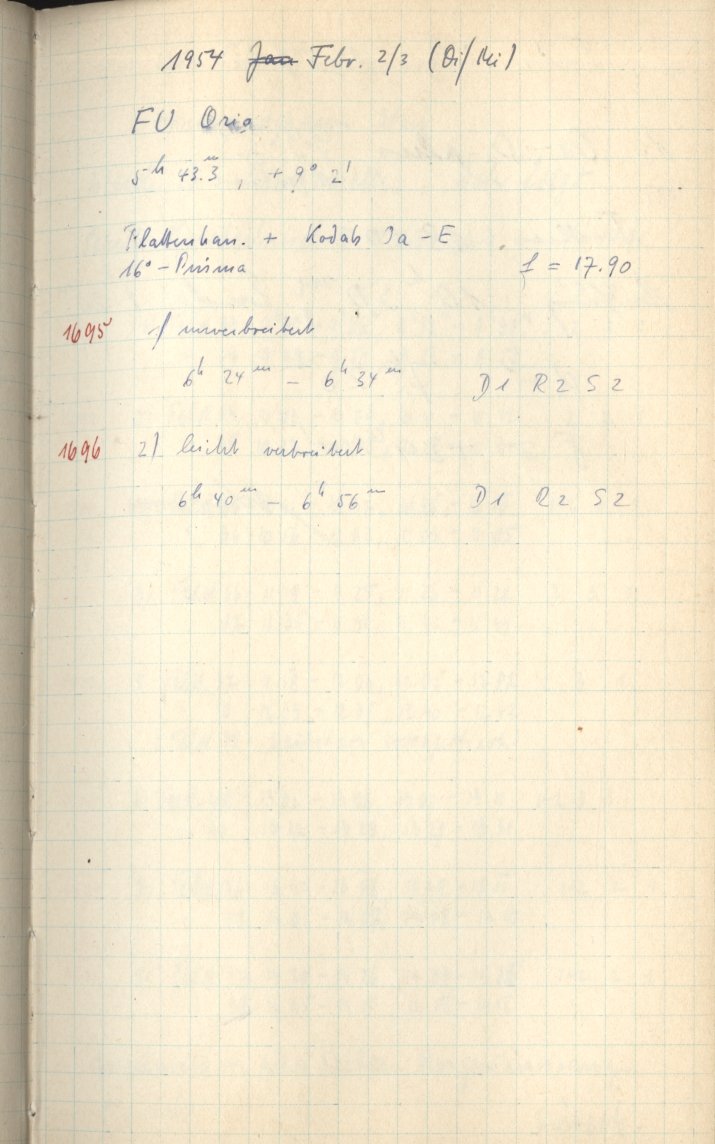 1954 Jan Febr. 2/3 (Di/Mi)
FU Orio
5h 43.3m, +9° 2'
Plattenkam. + Kodak Ia-E
16°-Prisma f = 17.90
1695 1) unverbreitert
6h 24m – 6h 34m D1 R2 S2
1696 2) leicht verbreitert
6h 40m – 6h 56m D1 R2 S2